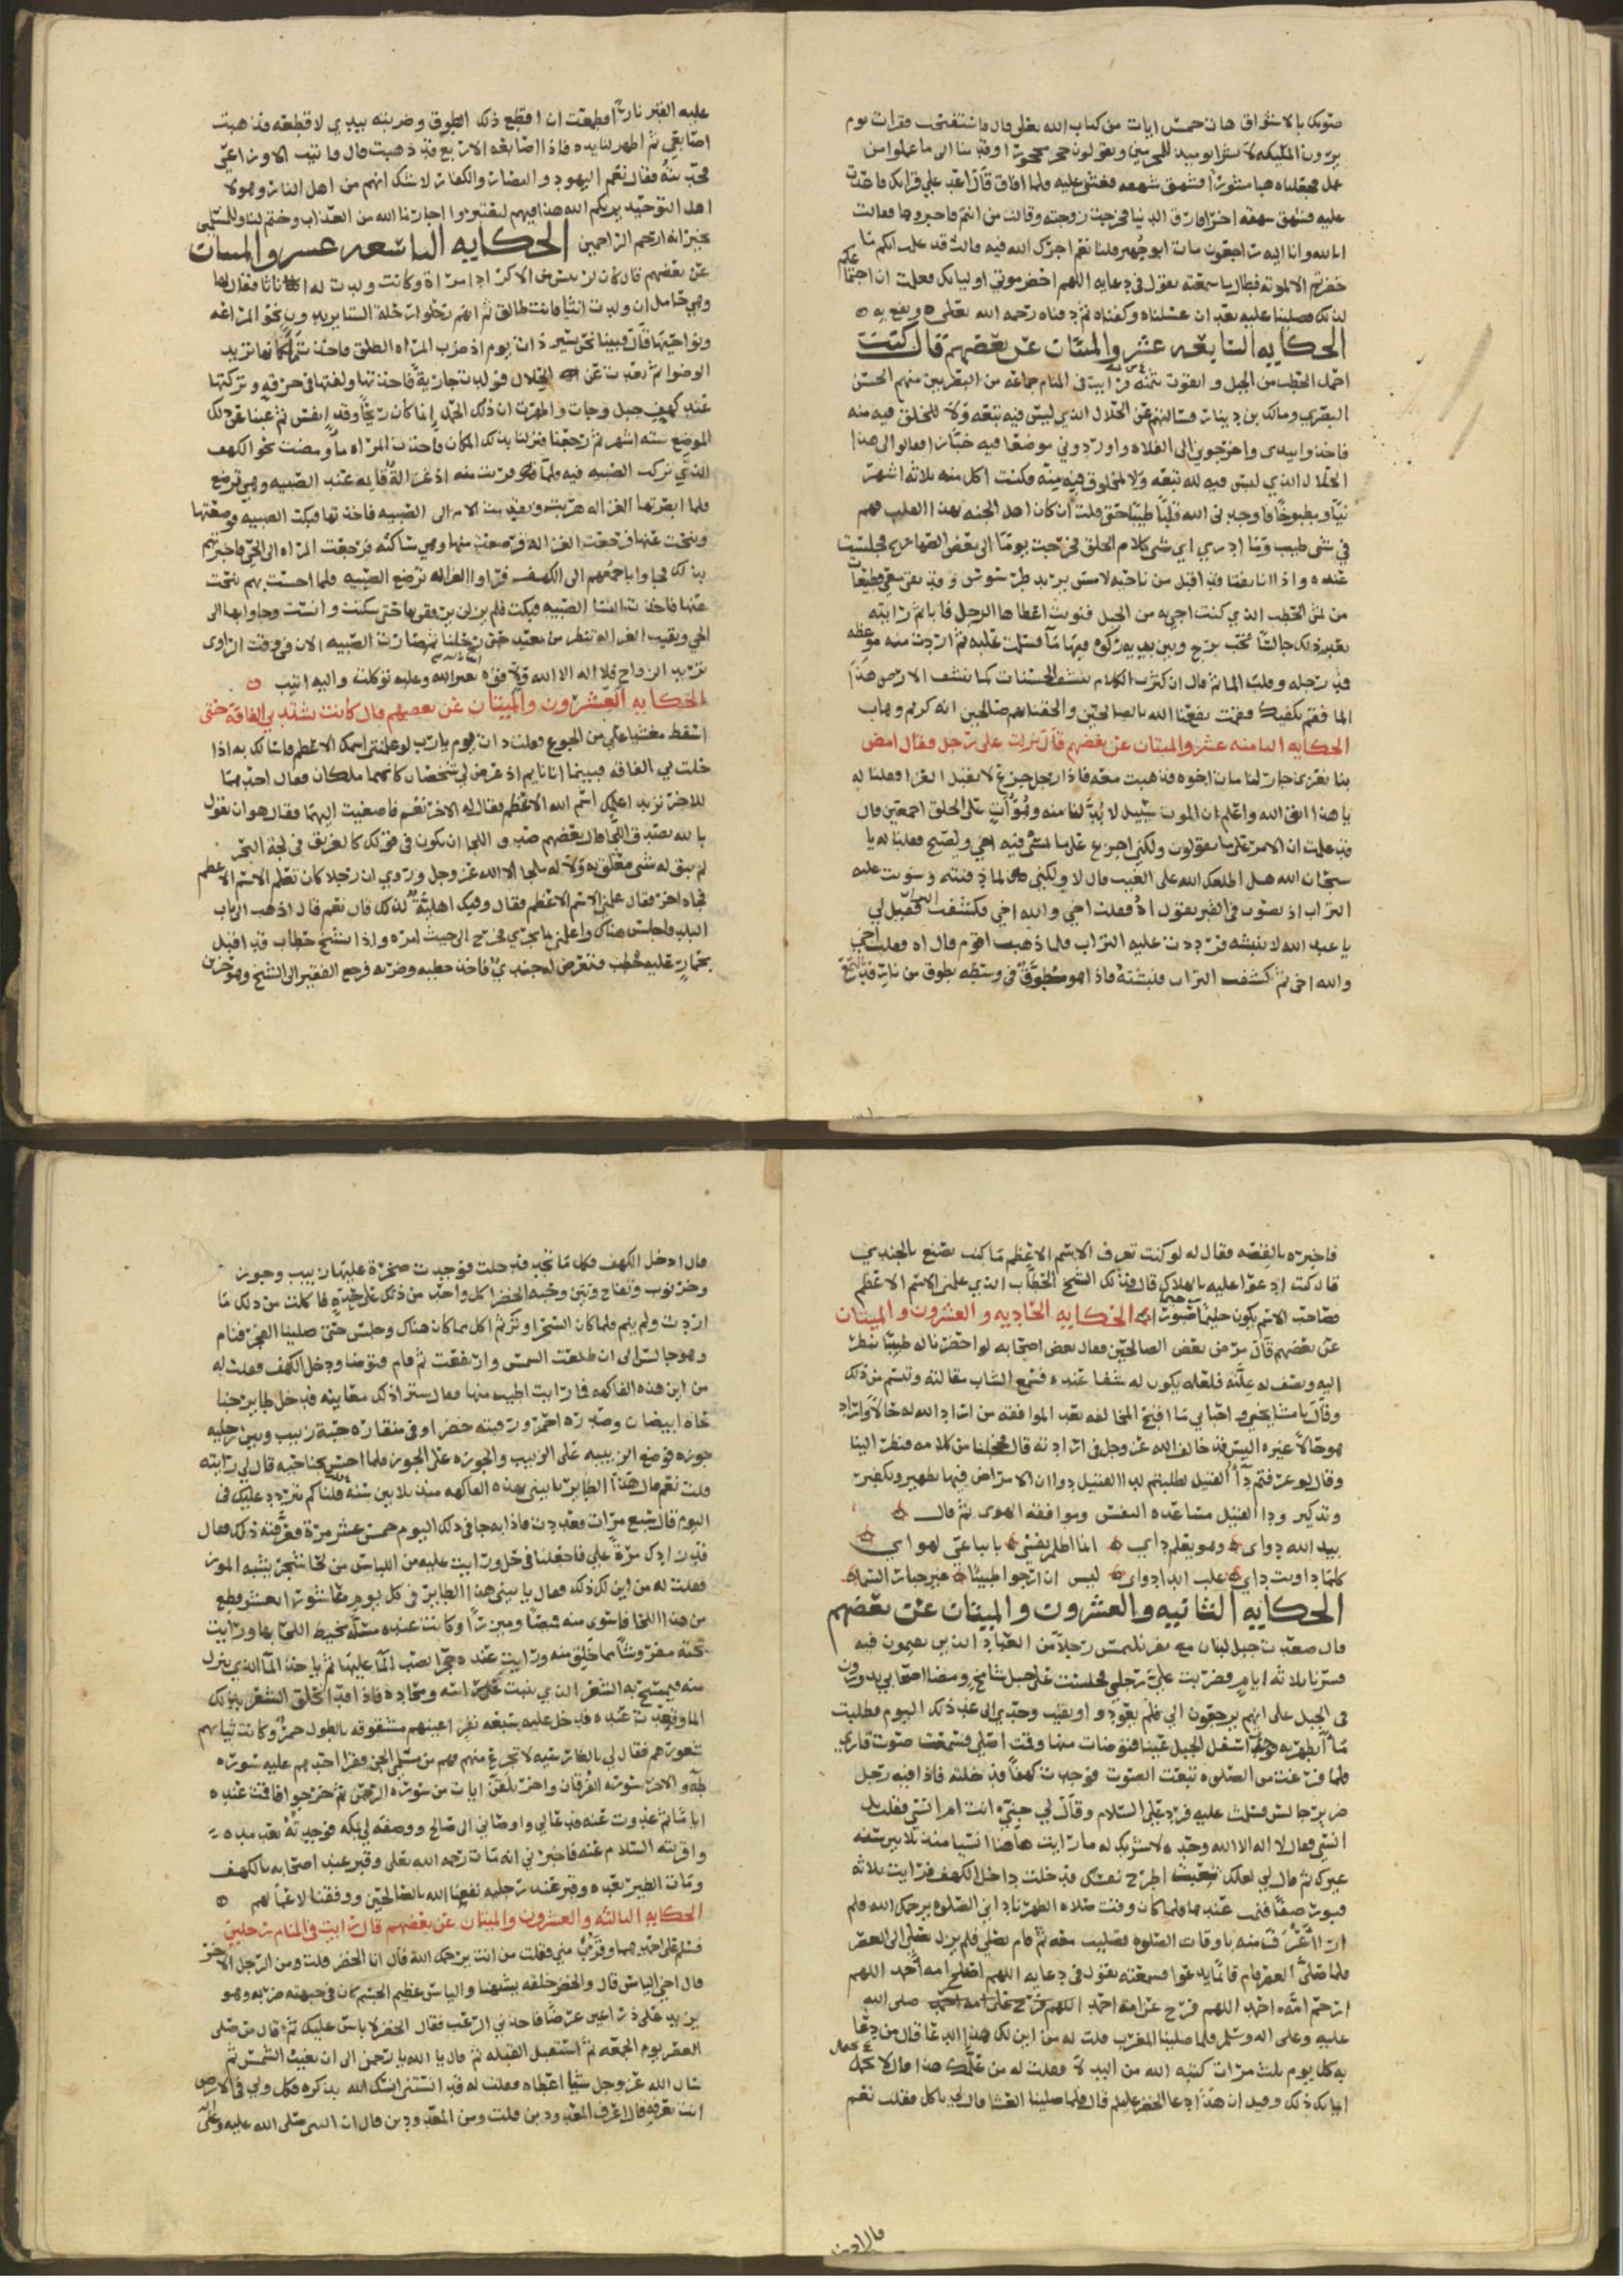 صوتك بالاستغراق هات خمس ايات من كتاب الله تعلى قال فاستفتحت فقرات يوم
يرون المليكه لا بشرا يوميد للمجرمين ويقولون حجرا محجورا وقدمنا الى ما عملوا من
عمل فجعلناه هبا منثورا فشهق شهقه فغشي عليه فلما افاق قال اعد علي قراتك فاعدت
عليه فشهق شهقه اخرى فارق الدنيا فخرجت زوجته وقالت من انتم فاخبروها فقالت
انا لله وانا اليه راجعون مات ابو جهير قلنا نعم اجرك الله فيه قالت قد علمت انكم ما
حضرتم الا لموته فطال ما سمعته يقول في دعايه اللهم احضر موتي اولياك فعلمت ان اجتماعكم
لذلك فصلينا عليه بعد ان غسلناه وكفناه ثم دفناه رحمه الله تعلى ونفع به
الحكايه السابعه عشر والميتان عن بعضهم قال كنت
احمل الحطب من الجبل و اتقوت بثمنه فرايت في المنام جماعه من البصريين منهم الحسن
البصري ومالك بن دينار فسالتهم عن الحلال الذي ليس فيه تبعه ولا للخلق فيه منه
فاخذوا بيدى واخرجوني الى الفلاه واوردوني موضعا فيه خبازا فقالوا لى هذا
الحلال الذي ليس فيه لله تبعه ولا لمخلوق فيه منه فكنت اكل منه ثلاثه اشهر
نيا ومطبوخا فاوجدنى الله قلبا طيبا حتى قلت ان كان اهل الجنه بهذا القلب فهم
في شى طيب وما ادري اي شى كلام الخلق فخرجت يوما الى بعض الصهاريج فجلست
عنده واذا انا بفتا قد اقبل من ناحيه لامش يريد طرسوس وقد بقى معي قطيعات
من ثمن الحطب الذي كنت اجي به من الجبل فنويت اعطاها الرجل
بعد ذلك جالسا تحت برج وبين يديه ركوه فيها ما فسلمت عليه ثم اردت منه موعظه
فمد رجله وقلب الما ثم قال ان كثرة الكلام ينشف الحسنات كما تنشف الارض هذا
الما فقم يكفيك فقمت نفعنا الله بالصالحين والحقنا بهم صالحين انه كريم وهاب
الحكايه الثامنه عشر والميتان عن بعضهم قال نزلت على رجل فقال امض
بنا نعزي جار لنا مات اخوه فذهبت معه فاذا رجل جزع لا يقبل العزا فقلنا له
يا هذا اتق الله واعلم ان الموت سبيل لا بد لنا منه وهو آت على الخلق اجمعين قال
قد علمت ان الامر على ما تقولون ولكني اجزع على ما امسى فيه اخي ويصبح فقلنا له يا
سبحان الله هل اطلعك الله على الغيب قال لا ولكني لما دفنته وسويت عليه
التراب اذ بصوت في القبر يقول اه فقلت اخي والله اخي فكشفت التراب فقيل لي
يا عبد الله لا تنبشه فرددت عليه التراب فلما ذهبت اقوم قال اه فقلت اخي
والله اخى ثم كشفت التراب فنبشته فاذا هو مطوق في وسطه بطوق من نار قد التمع
عليه القبر نارا فطمعت ان اقطع ذلك الطوق وضربته بيدي لاقطعه فذهبت
اصابعي ثم اظهر لنا يده فاذا اصابعه الاربع قد ذهبت قال فاتيت الاوزاعي
فحدثته فقال نعم اليهود والنصارى والكفار لا شك انهم من اهل النار وهولا
اهل التوحيد يريكم الله هذا فيهم لتعتبروا اجارنا الله من العذاب وختم لنا وللمسلمين
بخير انه ارحم الراحمين الحكايه التاسعه عشر والميتان
عن بعضهم قال كان لرئيس من الاكراد امراة وكانت ولدت له اناثا فقال لها
وهي حامل ان ولدت انثى فانت طالق ثم انهم رحلوا رحلة الشتا يريدون نحو المراغه
ونواحيها قال فبينا نحن نسير ذات يوم اذ ضرب المراه الطلق فاخذت كانها تريد
الوضوا ثم بعدت عن الحلال فولدت جارية فاخذتها ولفتها في خرقه وتركتها
عند كهف جبل وجات واظهرت ان ذلك الحمل انما كان ريحا وقد انفش ثم غبنا عن ذلك
الموضع سته اشهر ثم رجعنا فنزلنا بذلك المكان فاخذت المراه ما ومضت نحو الكهف
الذي تركت الصبيه فيه فلما قربت منه اذ غزالة قايمه عند الصبيه وهي ترضع
فلما ابصرتها الغزاله هربت وتقدمت الام الى الصبيه فاخذتها فبكت الصبيه فوضعتها
وتنحت عنها فرجعت الغزاله فرضعت منها وهي ساكته فرجعت المراه الى الحي فاخبرتهم
بذلك فجاوا باجمعهم الى الكهف فراوا الغزاله ترضع الصبيه فلما احست بهم تنحت
عنها فاخذت النسا الصبيه فبكت فلم يزلن يرفقن بها حتى سكنت وانست وجاوا بها الى
الحي وبقيت الغزاله تنظر من بعيد حتى رحلنا ثم صارت الصبيه الان في وقت الزواى
تريد الزواج فلا اله الا الله ولا قوه بغير الله وعليه توكلت واليه انيب
الحكايه العشرون والميتان عن بعضهم قال كانت تشتد بي الفاقه حتى
اسقط مغشيا علي من الجوع فقلت ذات يوم يا رب لو علمتنى اسمك الاعظم فاسالك به اذا
حلت بي الفاقه فبينما انا نايم اذ عرض لي شخصان كانهما ملكان فقال احدهما
للاخر تريد اعلمك اسم الله الاعظم فقال له الاخر نعم فاصغيت اليهما فقال هو ان تقول
يا لله بصدق اللجا قال بعضهم صدق اللجا ان يكون في فزعك كالغريق في لجة البحر
لم يبق له شى متعلق به ولا له ملجا الا الله عز وجل وروي ان رجلا كان تعلم الاسم الاعظم
فجاه اخر فقال علمني الاسم الاعظم فقال وفيك اهلية لذلك قال نعم قال اذهب الى باب
البلد فاجلس هناك واعلمني ما يجري فخرج الى حيث امره واذا بشيخ حطاب قد اقبل
بحمار عليه حطب فتعرض له جندي فاخذ حطبه وضربه فرجع الفقير الى الشيخ وهو حزين
فاخبره بالقصه فقال له لو كنت تعرف الاسم الاعظم ما كنت تصنع بالجندي
قال كنت ادعوا عليه بالهلاك قال فذلك الشيخ الحطاب الذي علمني الاسم الاعظم
فصاحب الاسم يكون حليما صبورا الحكايه الحاديه والعشرون والميتان
عن بعضهم قال مرض بعض الصالحين فقال بعض اصحابه لو احضرنا له طبيبا ينظر
اليه ويصف له علته فلعله يكون له شفا عنده فسمع الشاب مقالته وتبسم من ذلك
وقال يا مشايخي واحبابي ما اقبح المخالفه بعد الموافقه من اراد الله له حالا واراد
هو حالا غيره اليس قد خالف الله عز وجل في ارادته قال فخجلنا من كلامه فنظر الينا
وقال لو عرفتم دآ القتيل لطلبتم لدا القتيل دوا ان الامراض فيها تطهير وتكفير
وتذكير ودا القتيل مساعده النفس وموافقه الهوى ثم قال
بيد الله دواي وهو يعلم داي انما اظلم نفسي باتباعي لهواي
كلما داويت داي غلب الدا دواي ليس ان ارجوا طبيبا غير جبار السماء
الحكايه الثانيه والعشرون والميتان عن بعضهم
قال صعدت جبل لبنان مع نفر نلتمس رجلا من العباد الذين يقيمون فيه
فسرنا ثلاثه ايام فضربت على رجلي فجلست على جبل شامخ ومضا اصحابي يدورون
في الجبل على انهم يرجعون الي فلم يعودوا وبقيت وحدي الى غد ذلك اليوم فطلبت
ما اتطهر به فوجدت اسفل الجبل عينا فتوضات منها وقمت اصلي فسمعت صوت قاري
فلما فرغت من الصلوه تتبعت الصوت فوجدت كهفا فدخلته فاذا فيه رجل
ضرير جالس فسلمت عليه فرد علي السلام وقال لي جنيا انت ام انسي فقلت بل
انسي فقال لا اله الا الله وحده لا شريك له ما رايت هاهنا انسيا منذ ثلاثين سنه
غيرك ثم قال لي لعلك تعبت اطرح نفسك فدخلت داخل الكهف فرايت ثلاثه
قبور صفا فنمت عندها فلما كان وقت صلاه الظهر نادانى الصلوه يرحمك الله فلم
ار اعرف منه باوقات الصلوه فصليت معه ثم قام يصلي فلم يزل يصلي الى العصر
فلما صلى العصر قام قائما يدعوا فسمعته يقول في دعايه اللهم اصلح امه احمد اللهم
ارحم امه احمد اللهم فرج عن امه احمد صلى الله
عليه وعلى اله وسلم فلما صلينا المغرب قلت له من اين لك هذا الدعا قال من دعا
به كل يوم ثلث مرات كتبه الله من البدلا فقلت له من علمك هذا قال لا يحتمل
ايمانك ذلك وقيل ان هذا دعا الخضر عليه السلم قال فلما صلينا العشا قال لي تاكل فقلت نعم
قال ادخل الكهف فكل ما تجد فدخلت فوجدت صخرة عليها زبيب وجوز
وخرنوب وتفاح وتين وحبه الخضرا كل واحد من ذلك على حده فاكلت من ذلك ما
اردت ولم ينم فلما كان السحر اوتر ثم اكل مما كان هناك وجلس حتى صلينا الفجر فنام
وهو جالس الى ان طلعت الشمس وارتفعت ثم قام فتوضا ودخل الكهف فقلت له
من اين هذه الفاكهه فما رايت اطيب منها فقال سترا ذلك معاينه فدخل طاير جنا
حاه ابيضان وصدره احمر ورقبته خضرا وفي منقاره حبة زبيب وبين رجليه
جوزه فوضع الزبيبه على الزبيب والجوزه على الجوز فلما احس بجناحيه قال لي رايته
قلت نعم قال هذا الطاير ياتيني بهذه الفاكهه منذ ثلاثين سنه قلت كم يتردد عليك في
اليوم قال سبع مرات فعددت فاذا به جا في ذلك اليوم خمس عشر مرة فعرفته ذلك فقال
قد زادك مرة علي فاجعلنا في حل ورايت عليه من اللباس من لحا شجر يشبه الموز
فقلت له من اين لك ذلك فقال ياتيني هذا الطاير في كل يوم عاشورا بعشر قطع
من هذا اللحا فاسوي منه قميصا وميزرا وكانت عنده مسلة يخيط اللحا بها ورايت
تحته مفروشا مما خلق منه ورايت عنده حجرا يصب المآ عليها ثم ياخذ المآ الذي ينزل
منه فيمسح به الشعر الذي ينبت على راسه ومخاده فاذا قد انحلق الشعر بذلك
الما وقعدت عنده فدخل عليه سبعه نظر اعينهم مشقوقه بالطول حمر وكانت ثيابهم
شعورهم فقال لي بالفارسيه لا تجزع منهم فهم من مسلمي الجن فقرا احدهم عليه سوره
طه والاخر سوره الفرقان واخر يلقن ايات من سوره الرحمن ثم خرجوا فاقمت عنده
اياما ثم غدوت عنه فدعا لي واوصاني الى صالح ووصفه لي بمكه فوجدته بعد مده
واقريته السلام عنه فاخبرني انه مات رحمه الله تعلى وقبر عند اصحابه بالكهف
ومات الطير بعده وقبر عند رجليه نفعنا الله بالصالحين ووفقنا لاعمالهم
الحكايه الثالثه والعشرون والميتان عن بعضهم قال رايت في المنام رجلين
فسلم علي احدهما وقرب مني فقلت من انت يرحمك الله قال انا الخضر قلت ومن الرجل الاخر
قال اخي الياس قال والخضر خلقه يشبهنا والياس عظيم الجسم كان في جبهته ضربه وهو
يزيد على ذراعين عرضا فاخذني الرعب فقال الخضر لا باس عليك ثم قال من صلى
العصر يوم الجمعه ثم استقبل القبله ثم قال يا الله يا رحمن الى ان تغيب الشمس ثم
سال الله عز وجل شيا اعطاه فقلت له قد انستني انسك الله بذكره فكل ولي في الارض
انت تعرفه قال اعرف المعدودين قلت ومن المعدودين قال ان النبي صلى الله عليه وعلى
قال ادخل